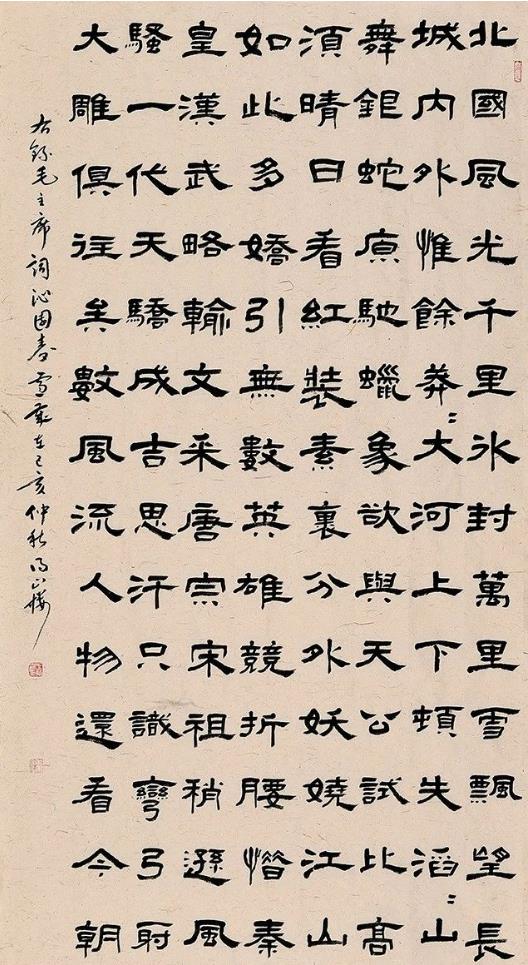 北國風光千里冰封萬里雪飄望長
城内外惟餘莽〻大河上下頓失滔〻山
舞銀蛇原馳蠟象欲與天公試比高
湏晴日看紅裝素裹分外妖嬈江山
如此多嬌引無數英雄競折腰惜秦
皇漢武略輸文采唐宗宋祖稍遜風
騷一代天驕成吉思汗只識彎弓射
大雕俱往矣數風流人物還看今朝
右錄毛主席詞沁園春雪歲在己亥仲秋